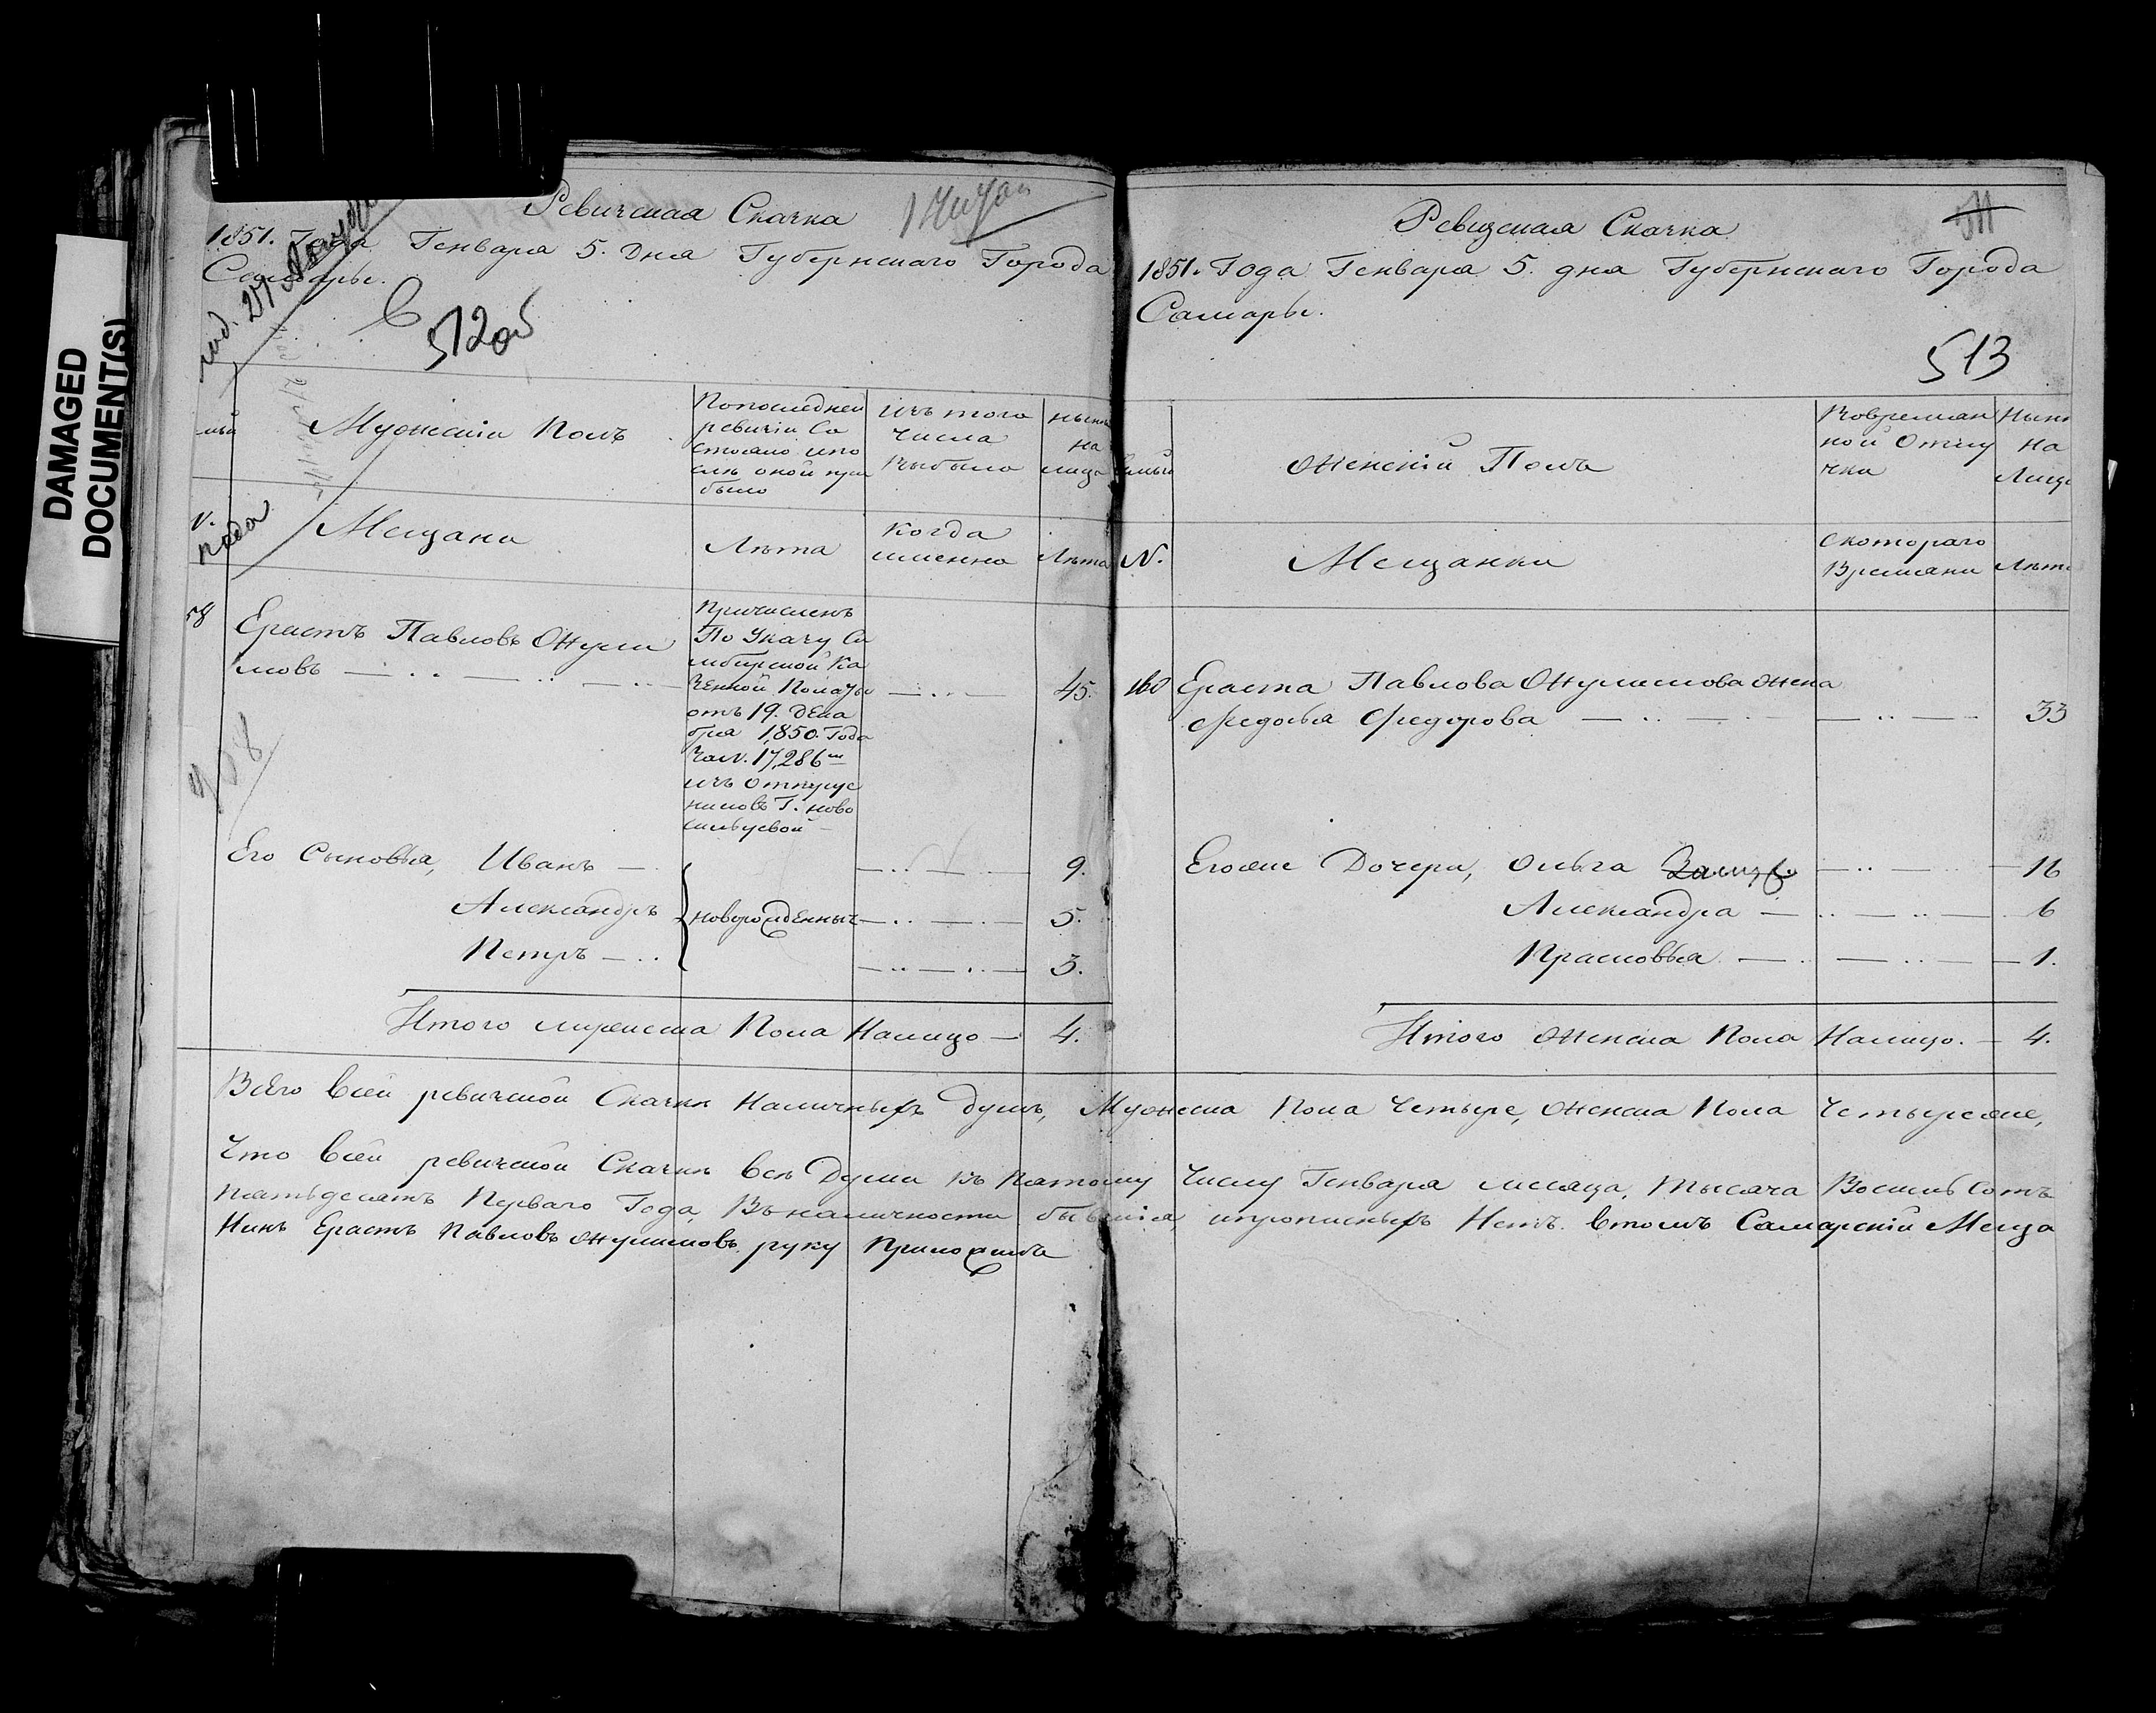 DAMAGED
DOCUMENT(S)
Ревизская Сказка
1851. Года Генваря 5. Дня Губернскаго Города
Самары.
512об
Мужескiй Полъ
Попоследней
ревизiи Со
стояло ипо
слѣ оной при
было
изъ того
числа
выбыло
нынѣ
на
лицо
Мещани
Лѣта
Когда
именно
Лѣта
58
Ерастъ Павловъ Жули
мовъ
Причисленъ
По Указу Си
мбирской Ка
зенной Палаты
отъ 19. Дека
бря 1,850. Года
за N. 17,286м
изъ отпущен
никовъ Г. Ново
сильцевой
45.
Его Сыновья, Иванъ 9.
Александръ новорожденныя 5.
Петръ 3.
Итого мужеска Пола Налицо 4.
Ревизская Сказка
1851. Года Генваря 5. дня Губернскаго Города
Самары.
513
Женскiй Полъ
Вовремян
ной Отлу
чки
Нын
На
Лиц
N.
Мещанки
Скотораго
Времяни
Лѣт
160 Ераста Павлова Жулимова жена
Федосья Федорова 33
Егоже Дочери, Ольга 16
Александра 6
Прасковья 1.
Итого женска Пола Налицо. 4.
Всего Всей ревизской Сказки Наличныхъ душъ, Мужеска Пола Четыре, женска Пола Четыреже,
Что Всей ревизской Сказки Всѣ Души къ Пятому Числу Генваря месяца, Тысяча Восимь Сотъ
Пятьдесятъ Перваго Года, Въ наличности бывшiя, ипрописныхъ Нетъ. Втомъ Самарскiй Меща
Нинъ Ерастъ Павловъ Жулимовъ руку Приложилъ